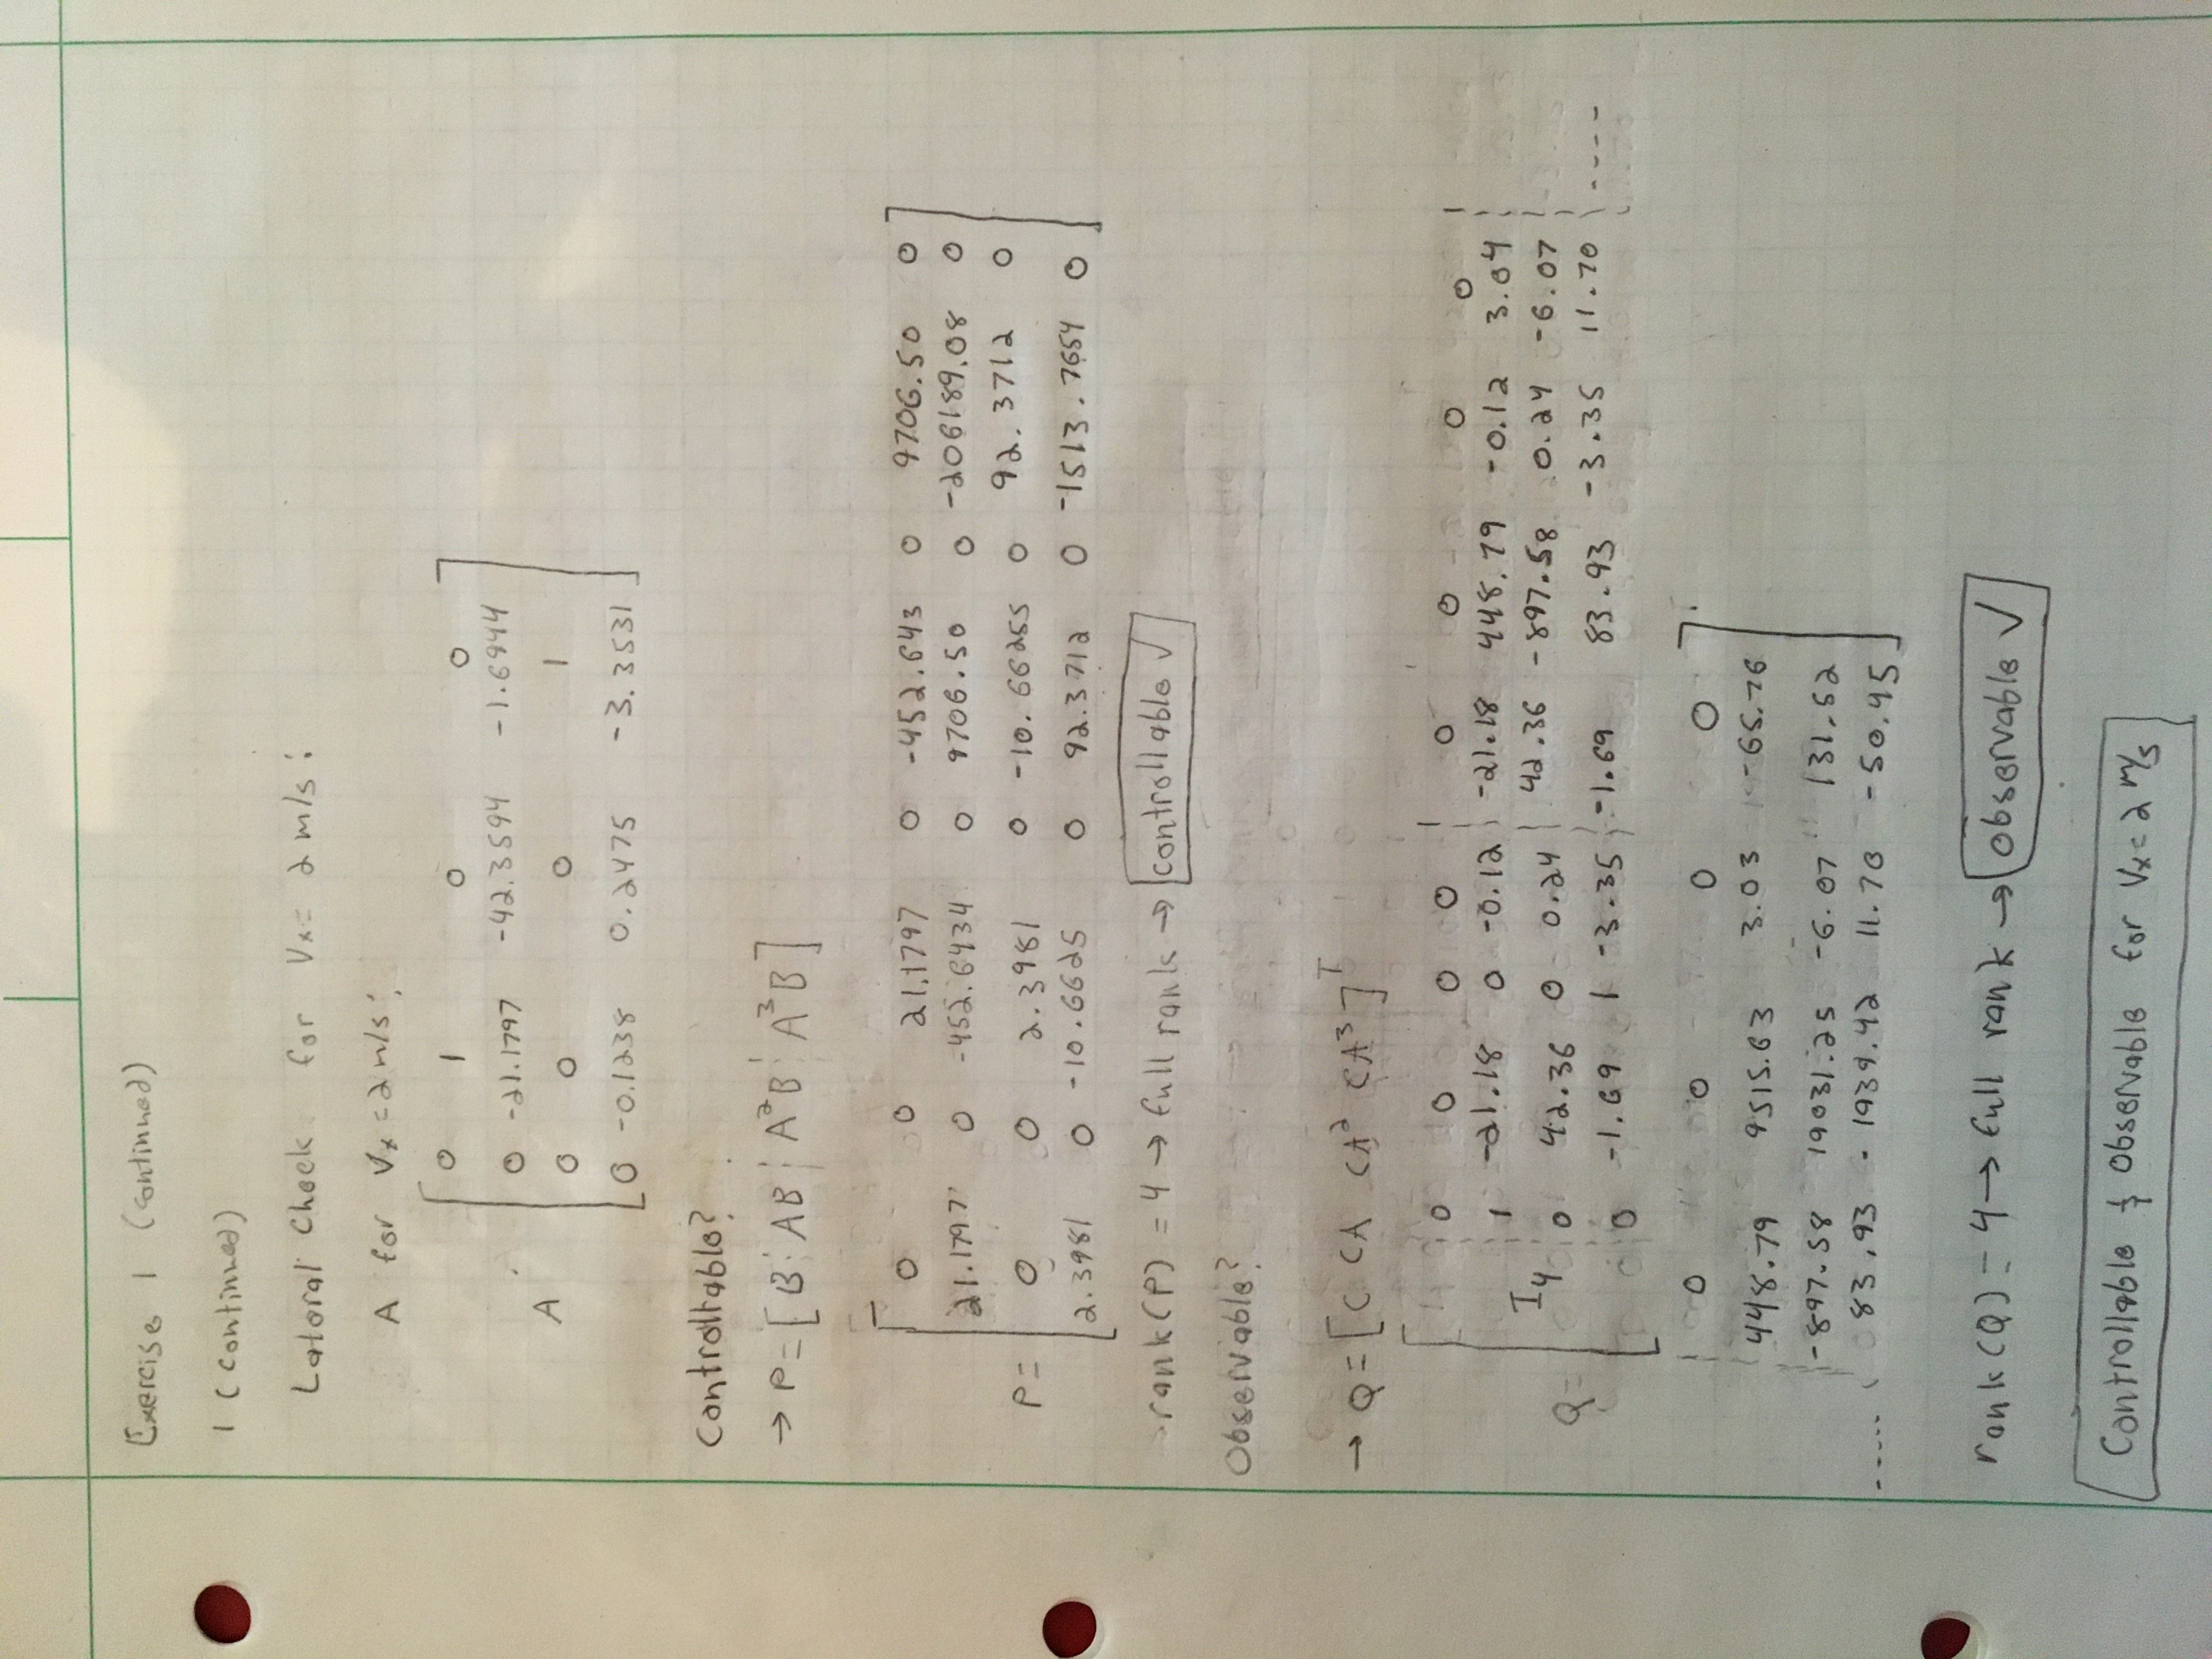 Exercise 1 (continued)
1 (continued)
Lateral Check for Vx = 2 m/s:
A for Vx = 2 m/s:
0 1 0 0
0 -21.1797 -42.3594 -1.6944
A
0 0 0 1
0 -0.1238 0.2475 -3.3531
Controllable?
→ P = [B ¦ AB ¦ A²B ¦ A³B]
0 0 21.1797 0 -452.643 0 9706.50 0
21.1797 0 -452.6434 0 9706.50 0 -206189.08 0
P = 0 0 2.3981 0 -10.66255 0 92.3712 0
2.3981 0 -10.6625 0 92.3712 0 -1513.7654 0
rank(P) = 4 → full rank → controllable ✓
Observable?
→ Q = [C CA CA² CA³]ᵀ
0 0 0 0 ¦ 0 0 0 0 ¦
1 -21.18 0 -0.12 ¦ -21.18 448.79 -0.12 3.04 ¦
Q = I₄ 0 42.36 0 0.24 ¦ 42.36 -897.58 0.24 -6.07 ¦
0 -1.69 1 -3.35 ¦ -1.69 83.93 -3.35 11.70 ¦ ----
0 0 0 0
448.79 9515.63 3.03 -65.76
-897.58 19031.25 -6.07 131.52
..... 83.93 -1939.42 11.70 -50.45
rank(Q) = 4 → full rank → observable ✓
Controllable & Observable for Vx = 2 m/s